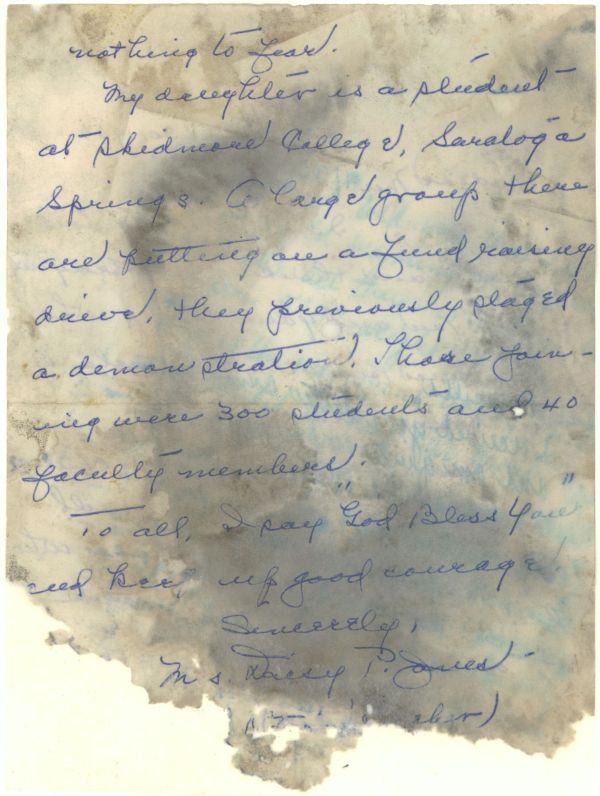 nothing to fear.
My daughter is a student
at Skidmore College, Saratoga
Springs. A large group there
are putting on a fund raising
drive, they previously staged
a demonstration. Those join-
ing were 300 students and 40
faculty members.
To all, I say "God Bless You"
and keep up good courage!
Sincerely,
Daisy P. Jones